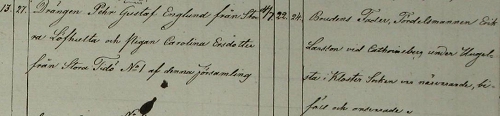 13. 27. Drängen Pehr Gustof Englund från Sto
ra Löfhulta och Pigan Carolina Ersdotter
från Stora Tidö No 1 af denna församling
4/7 22. 24.
Brudens Fader, Fördelsmannen Erik
Larsson ved Cathrineberg under
sta i Kloster Socken var närvarande, be
fäst och